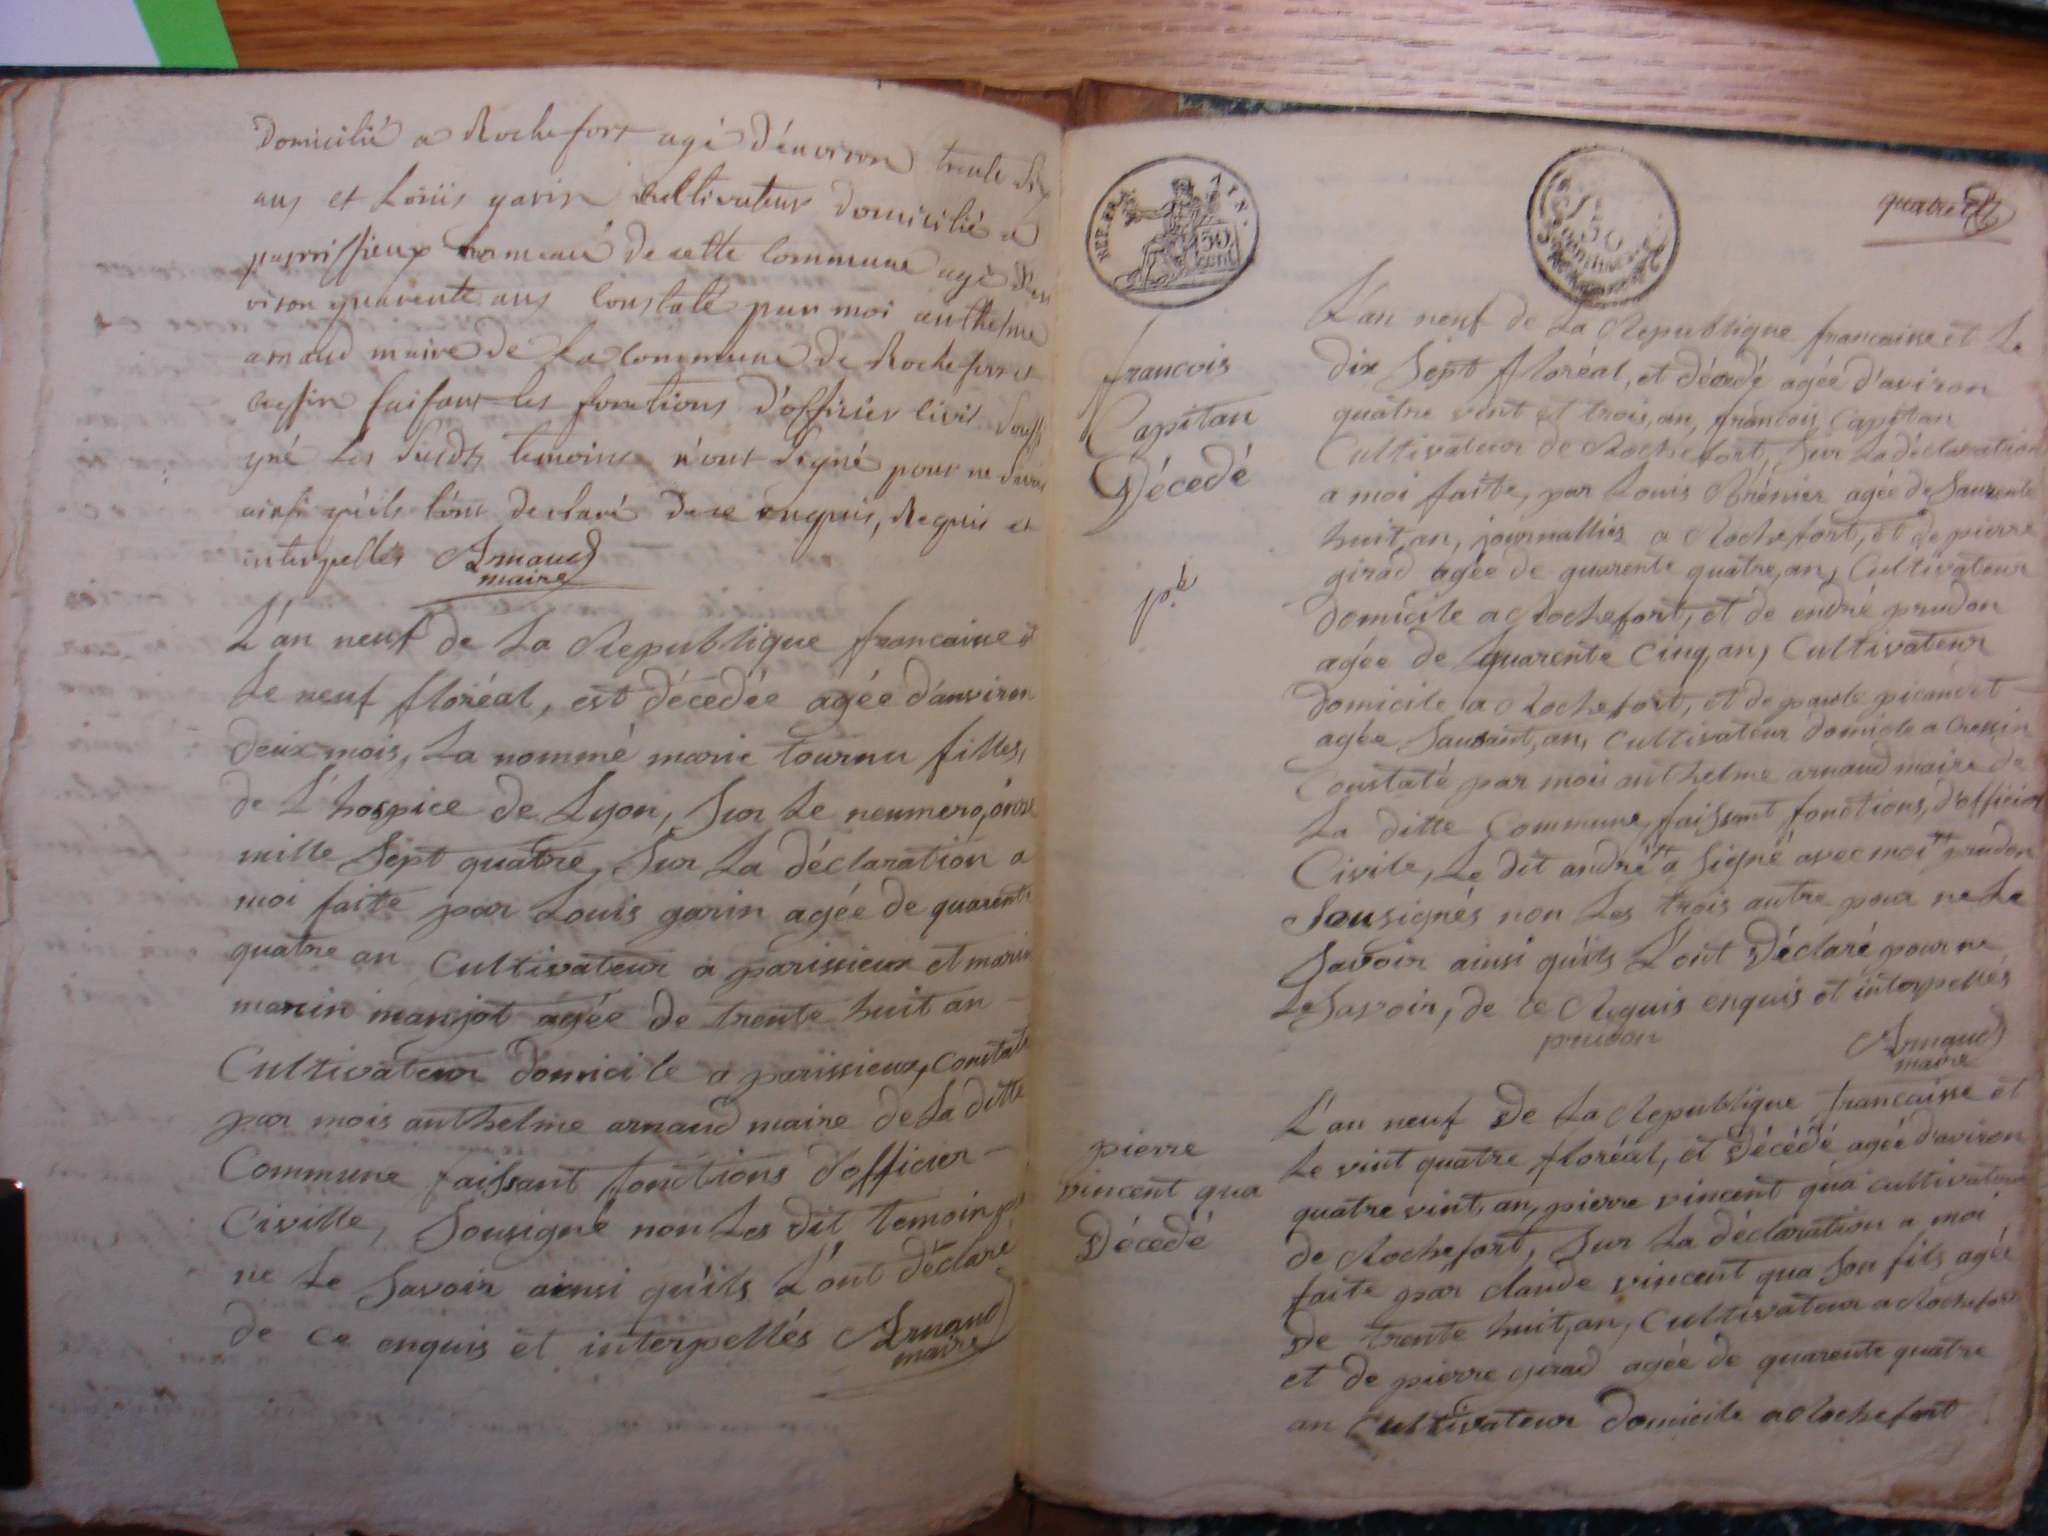 Domicilié a Rochefort agé d'énviron trente six
ans et Loüis garin Cultivateur domicilié a
parrissieux hameau de cette Commune agé den
viron quarente ans Constaté par moi anthelme
arnaud maire de La Commune de Rochefort et
cressin faisant les fonctions d'officier civil soussi
gné Les susdts temoins n'ont signé pour ne savoir
ainsi qu'ils l'ont declaré de ce enquis, Requis et
interpellés Arnaud
maire
L'an neuf de La Republique francaine et
Le neuf floréal, est décedée agée d'anviron
deux mois, La nommé marie tournu filles,
de L'hospice de Lyon, Sur Le neumero, onze
mille Sept quatre, Sur La déclaration a
moi faite par Louis garin agée de quarente
quatre an Cultivateur a parissieux et marin
marin manjot agée de trente huit an
Cultivateur domicile a parissieux, Constaté
par mois anthelme arnaud maire de La ditte
Commune faissant fonctions d'officier
Civille, Sousigné non Les dit temoin p
ne Le Savoir ainsi qu'ils L'ont déclaré
de ce enquis et interpellés Arnaud
maire
REP. FRA.
50
cent
50
quatre
francois
Capitan
Décedé
L'an neuf de La Republique francaine et Le
dix Sept floréal, et décedé agée d'aviron
quatre vint et trois, an, francois Capitan
Cultivateur de Rochefort, Sur La déclaration
a moi faite, par Louis Brénier agée de Saurente
huit, an, journallier a Rochefort, et de pierre
girad agée de quarente quatre, an, Cultivateur
domicile a Rochefort, et de endré prudon
agée de quarente Cinq, an, Cultivateur
domicile a Rochefort, et de paule
agée Sausant, an, Cultivateur domicile a Cressin
Constaté par mois anthelme arnaud maire de
La ditte Commune, faissant fonctions, d'officier
Civile, Le dit andré a Signé avec moi prudon
Sousignés non Les trois autre pour ne Le
Savoir ainsi qu'ils L'ont Déclaré pour ne
Le Savoir, de ce Requis enquis et interpellés
prudon Arnaud
maire
pierre
vincent qua
Décedé
L'an neuf de La Republique francaisse et
Le vint quatre floréal, et Décédé agée d'aviron
quatre vint, an, pierre vincent qua cultivateur
de Rochefort, Sur La déclaration a moi
faite par claude vincent qua Son fils agée
de trente huit, an, Cultivateur a Rochefort
et de pierre girad agée de quarente quatre
an Cultivateur domicile a Rochefort